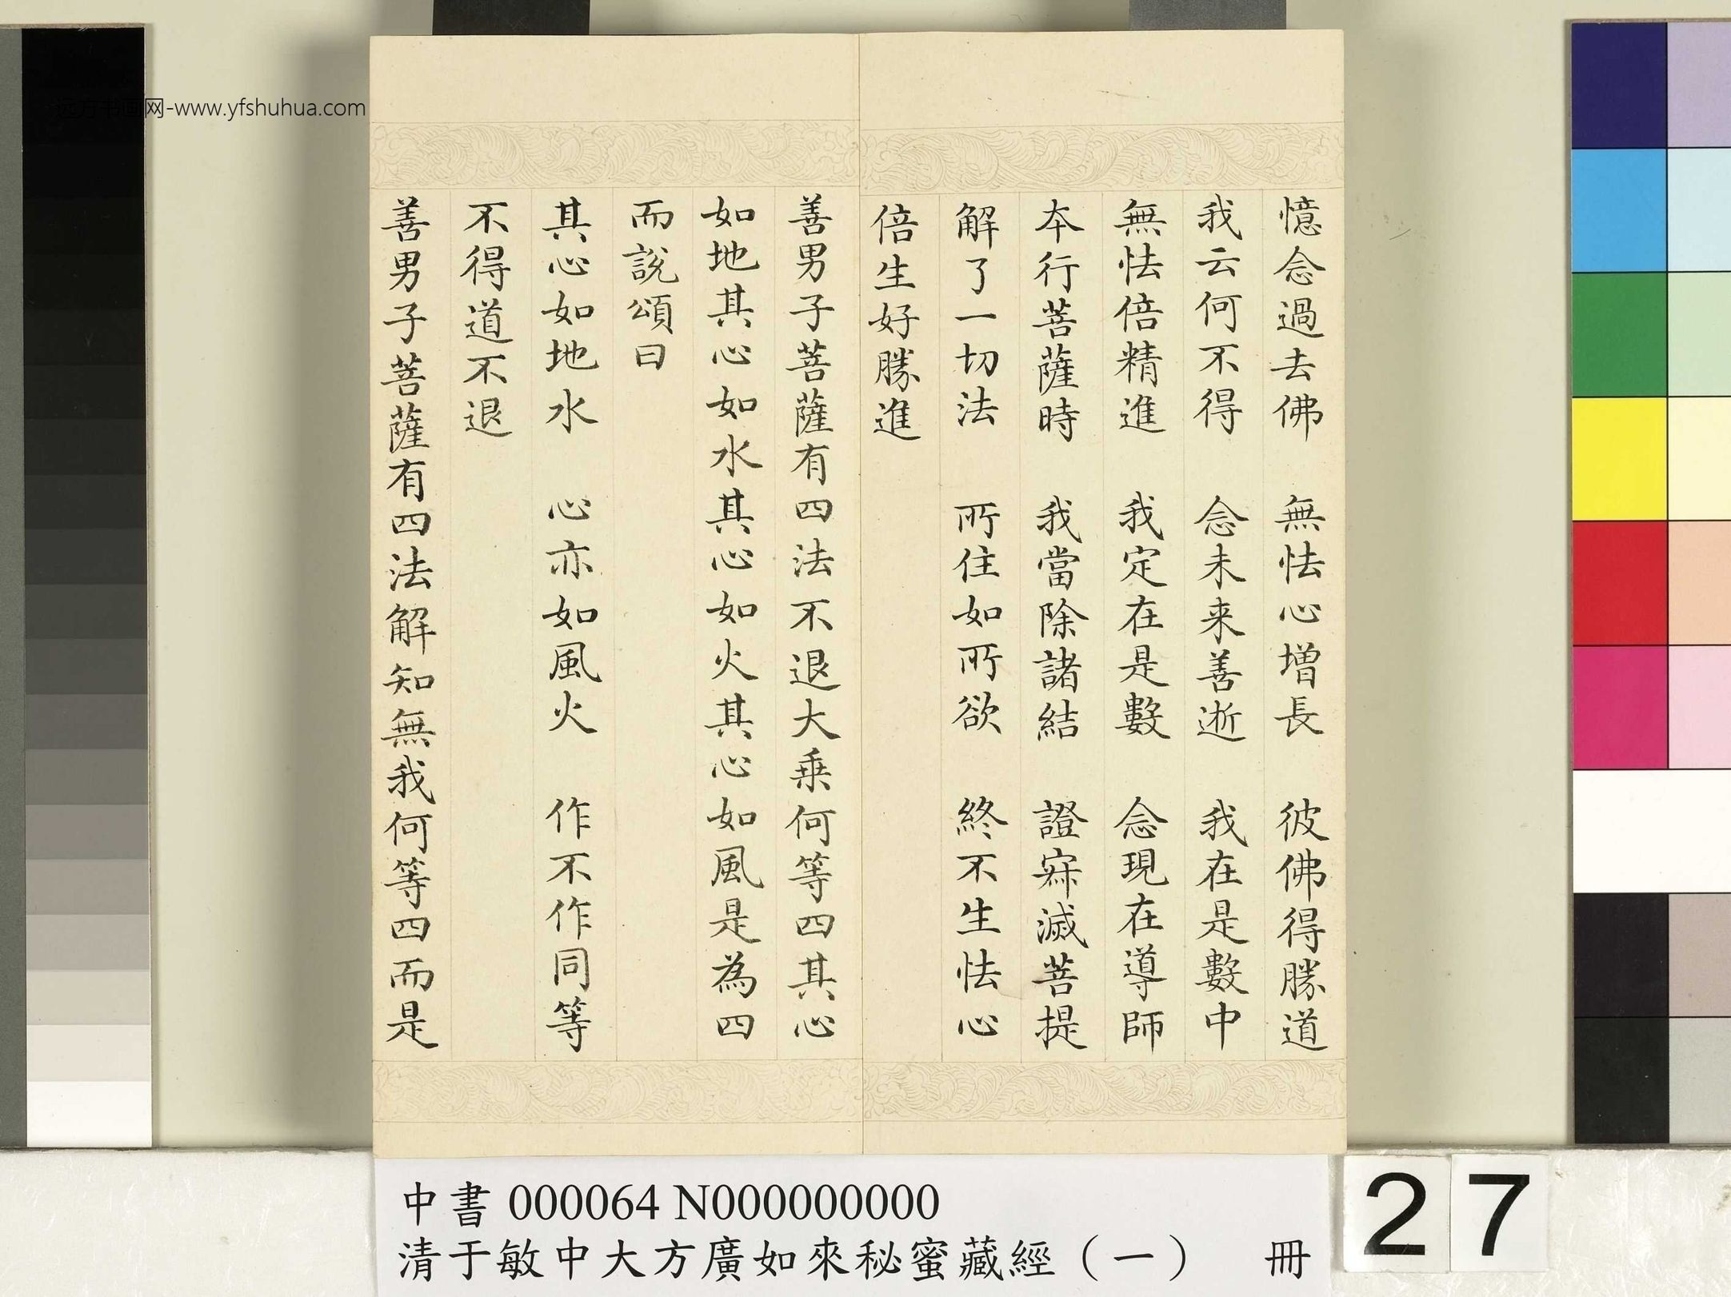 憶念過去佛　無怯心增長　彼佛得勝道
我云何不得　念未来善逝　我在是數中
無怯倍精進　我定在是數　念現在導師
本行菩薩時　我當除諸結　證寂滅菩提
解了一切法　所住如所欲　終不生怯心
倍生好勝進
善男子菩薩有四法不退大乗何等四其心
如地其心如水其心如火其心如風是為四
而說頌曰
其心如地水　心亦如風火　作不作同等
不得道不退
善男子菩薩有四法解知無我何等四而是
中書 000064 N000000000
清于敏中大方廣如來秘蜜藏經（一）　冊
27
网-www.yfshuhua.com